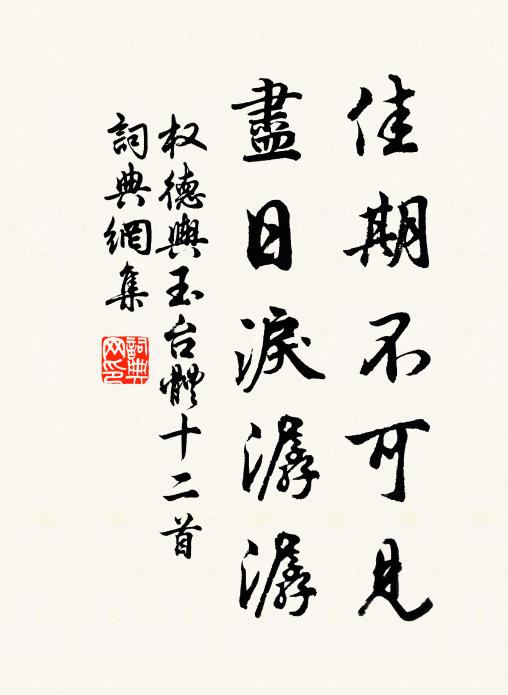 佳期不可見
盡日淚潺潺
权德輿玉台體十二首
詞典網集
詞典
网印